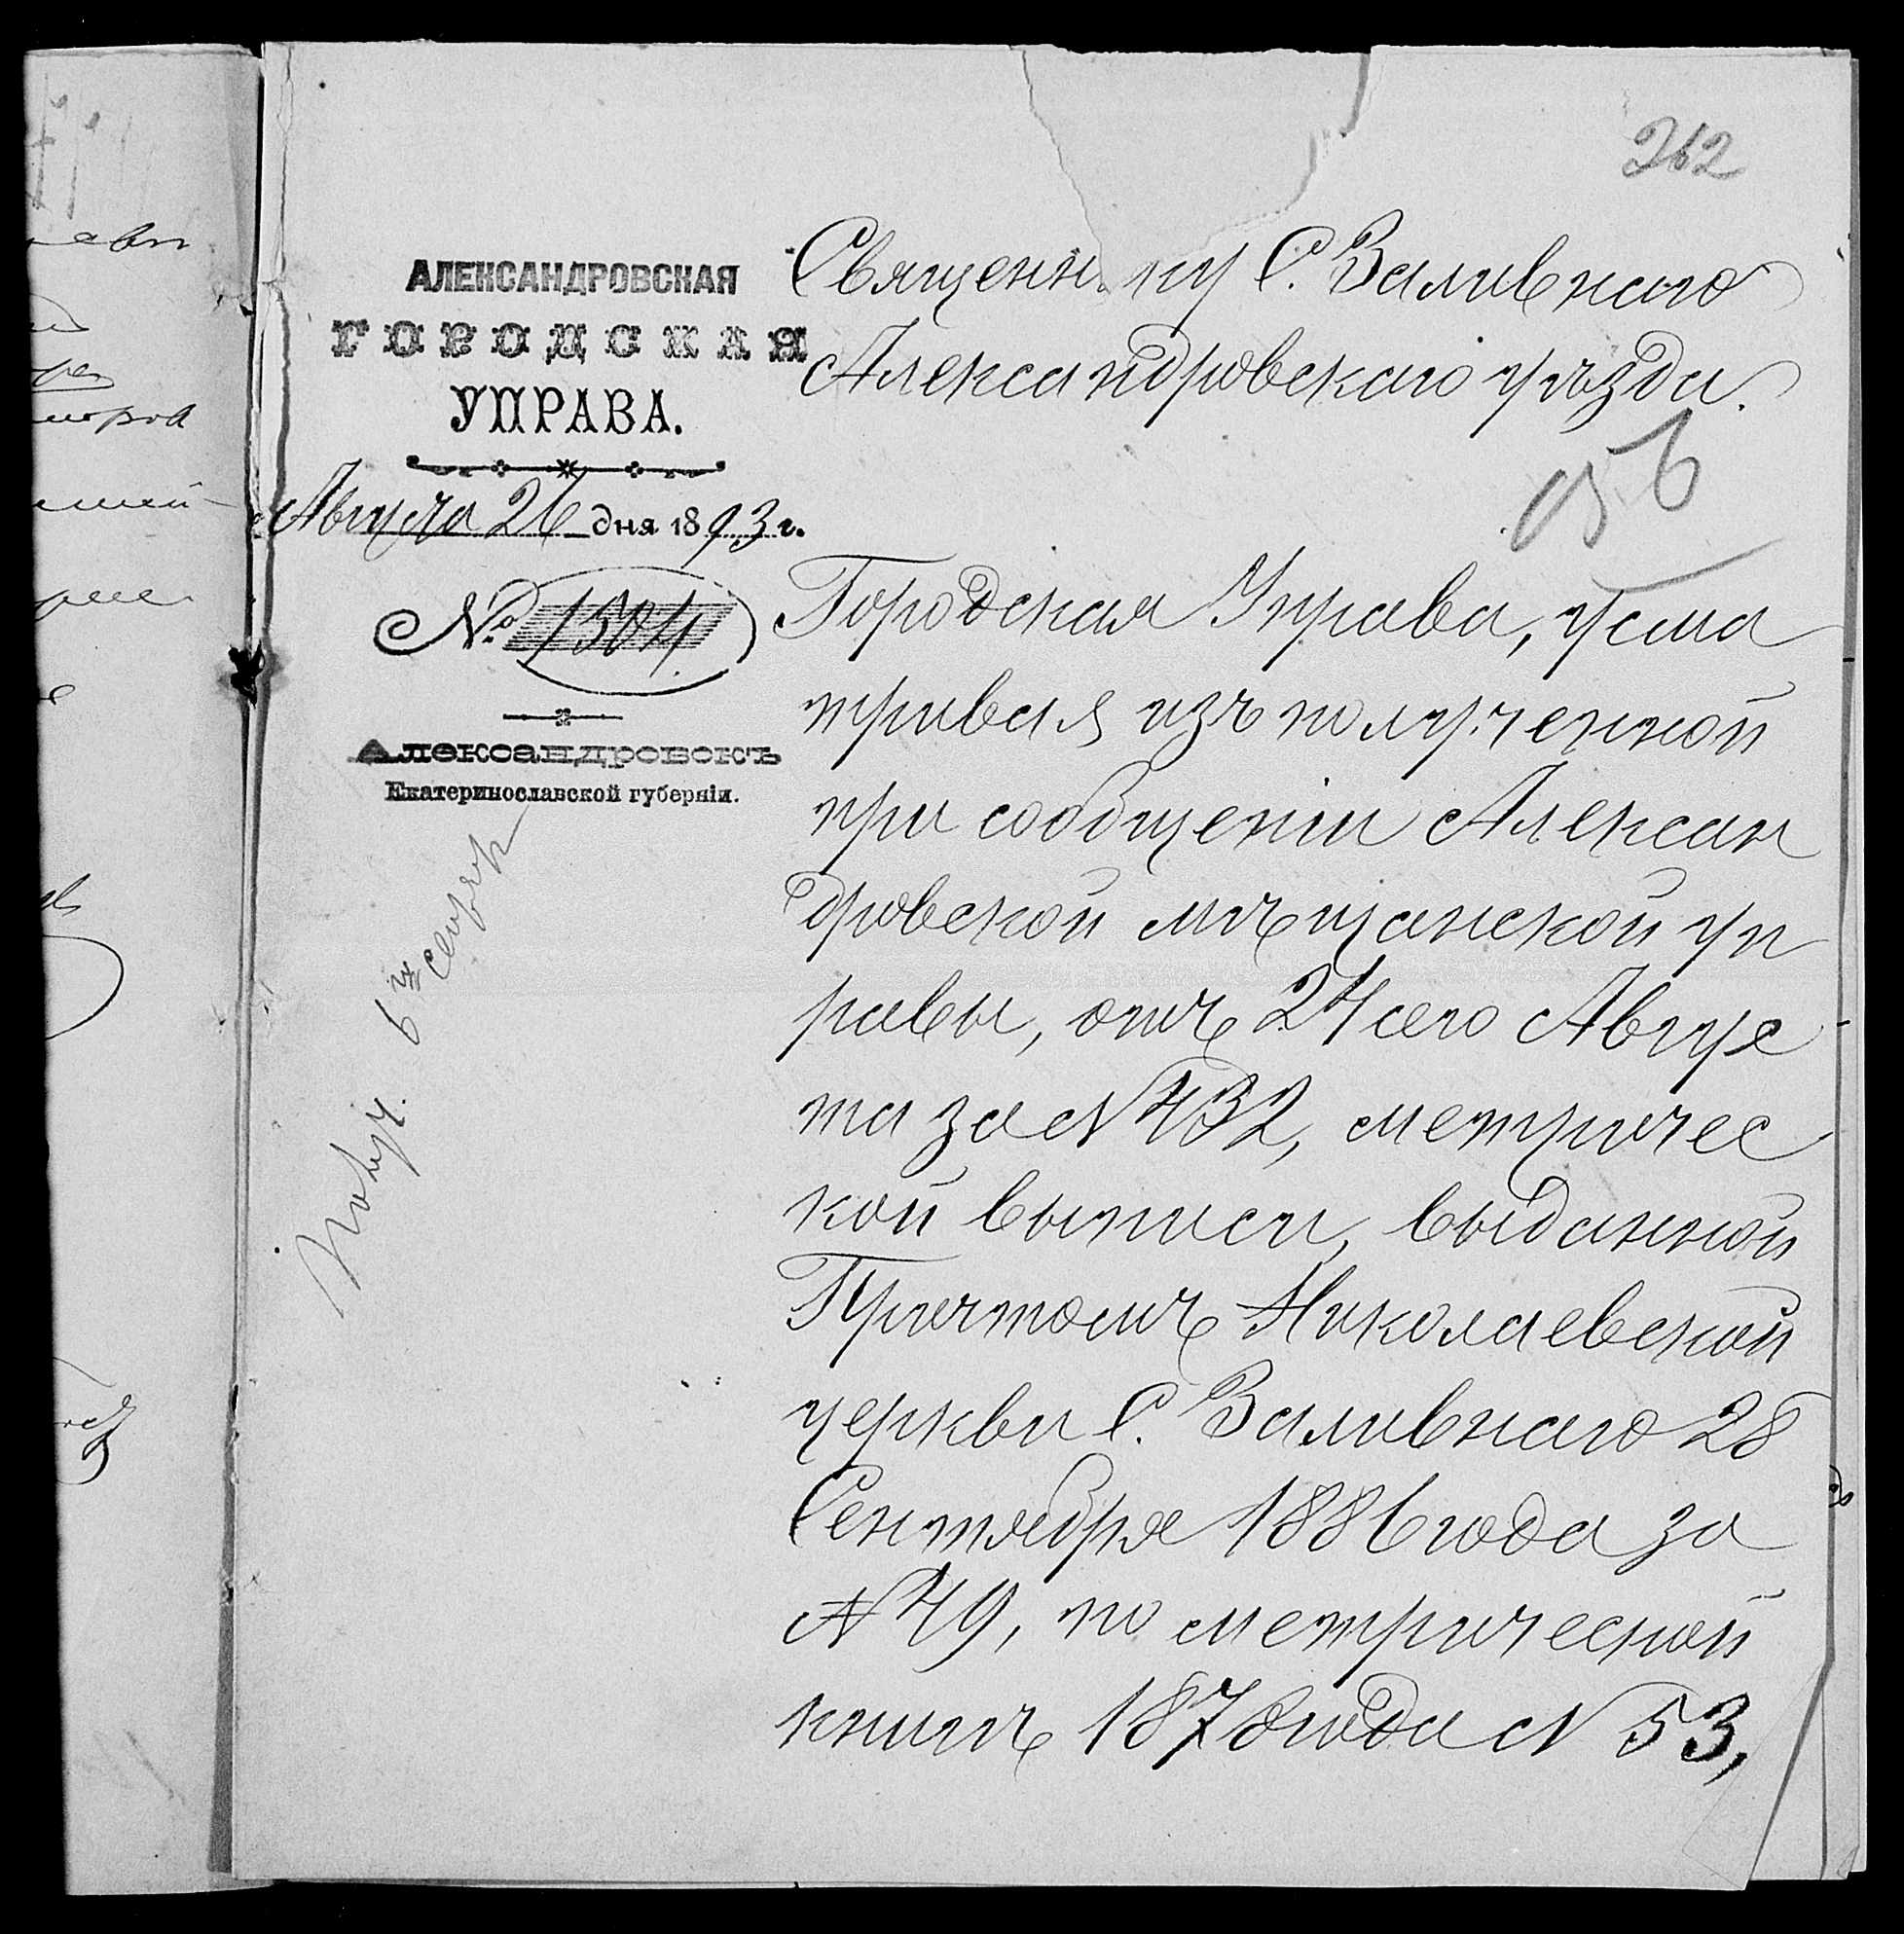 262
АЛЕКСАНДРОВСКАЯ
ГОРОДСКАЯ
УПРАВА.
Августа 26 дня 1893 г.
№ 1504
Александровскъ
Екатеринославской губерніи.
Священнику С. Заливнаго
Александровскаго уѣзда.
156
Городская Управа, усма
тривая изъ полученной
при сообщеніи Алексан
дровской мѣщанской уп
равы, отъ 24 сего Авгус
та за № 432, метричес
кой выписи, выданной
Причтомъ Николаевской
церкви С. Заливнаго 28
Сентября 1886 года за
№ 49, по метрической
книгѣ 1878 года № 53,
Получ. 6го сентяб